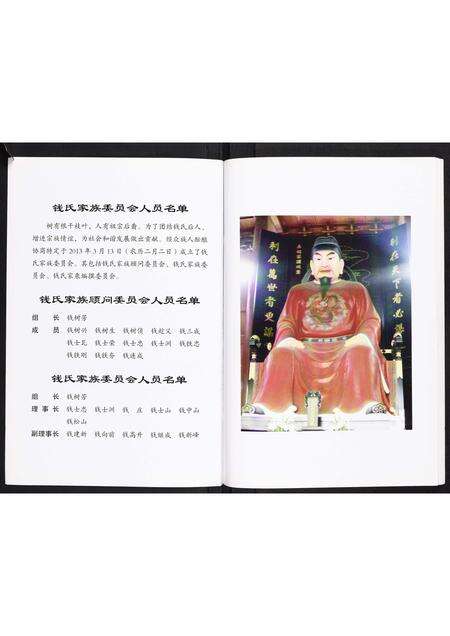 钱氏家族委员会人员名单
树有根干枝叶，人有祖宗后裔。为了团结钱氏后人，
增进宗族情谊，为社会和谐发展做出贡献。经众族人酝酿
协商特定于2013年3月13日（农历二月二日）成立了钱
氏家族委员会。其包括钱氏家族顾问委员会、钱氏家族委
员会、钱氏家乘编撰委员会。
钱氏家族顾问委员会人员名单
组 长 钱树芳
成 员 钱树兴 钱树生 钱树倩 钱超父 钱三成
钱士瓦 钱士荣 钱士忠 钱士洲 钱铁忠
钱铁刚 钱铁夯 钱连成
钱氏家族委员会人员名单
组 长 钱树芳
理 事 长 钱士忠 钱士洲 钱 庄 钱士山 钱中山
钱松山
副理事长 钱建新 钱向前 钱高升 钱继成 钱新峰
利在萬世者更谋
利在天下者必谋